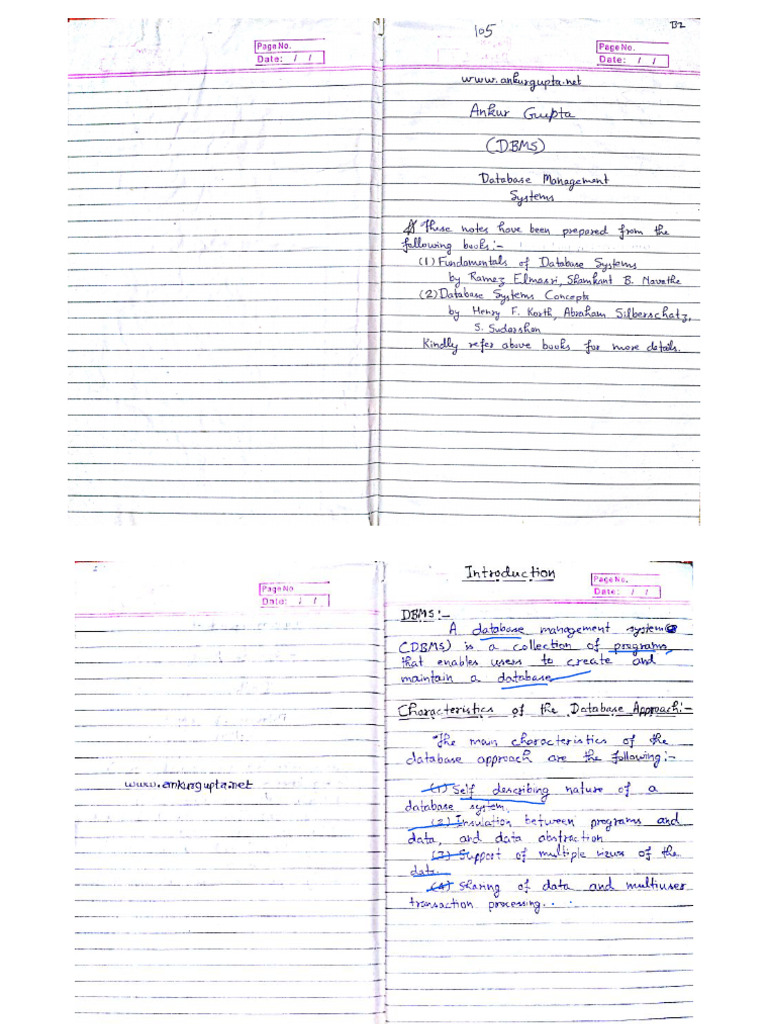 Page No.
Date: / /
105
B2
Page No.
Date: / /
www.ankurgupta.net
Ankur Gupta
(DBMS)
Database Management
Systems
These notes have been prepared from the
following books:-
(1) Fundamentals of Database Systems
by Ramez Elmasri, Shamkant B. Navathe
(2) Database Systems Concepts
by Henry F. Korth, Abraham Silberschatz,
S. Sudarshan
Kindly refer above books for more details.
Page No
Date: / /
www.ankurgupta.net
Introduction
Page No.
Date: / /
DBMS:-
A database management system
(DBMS) is a collection of programs
that enables users to create and
maintain a database
Characteristics of the Database Approach:-
The main characteristics of the
database approach are the following:-
(1) Self describing nature of a
database system.
(2) Insulation between programs and
data, and data abstraction
(3) Support of multiple views of the
data.
(4) Sharing of data and multiuser
transaction processing.